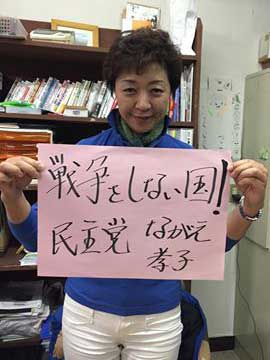 戦争をしない国!
民主党 ながえ
孝子